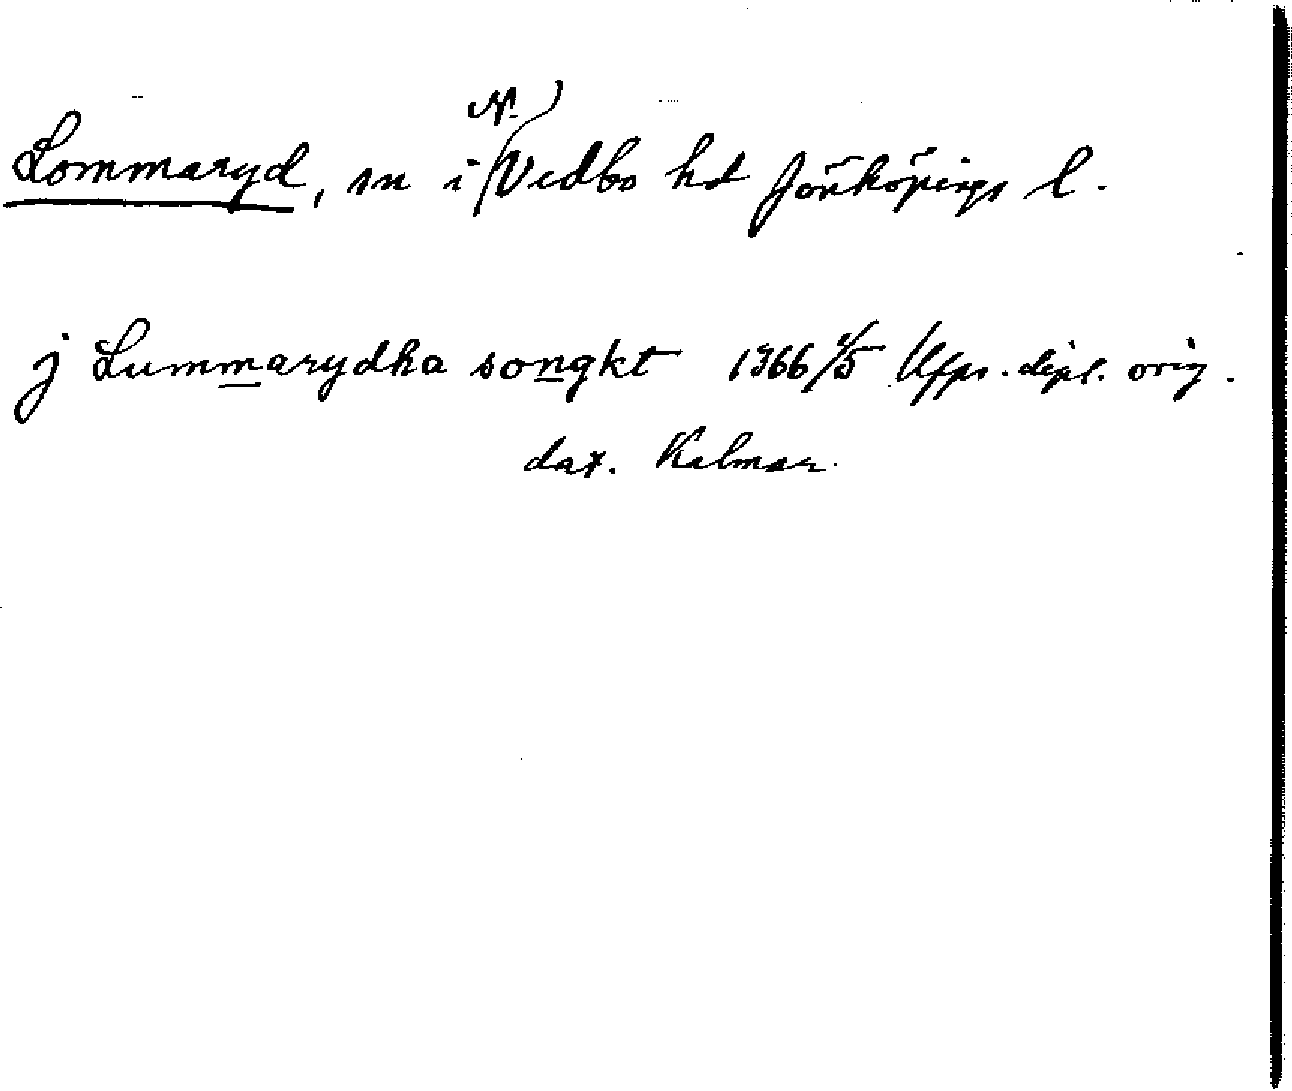 Lommaryd, sn i N. Vedbo hd Jönköpings l.
j Lummarydha songkt 1366 /5 Upps. dipl. orig.
dat. Kalmar.